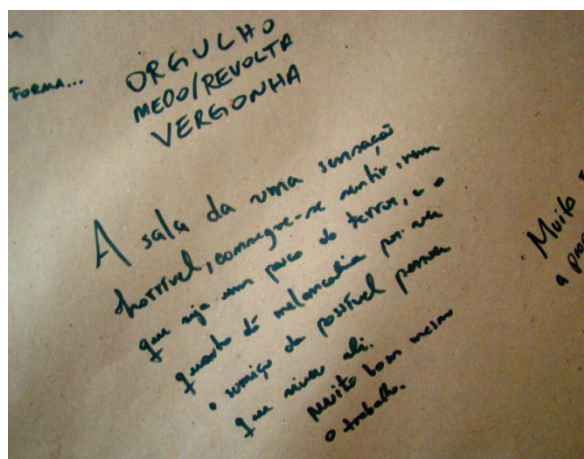 FORMA...
ORGULHO
MEDO/REVOLTA
VERGONHA
A sala da uma sensação
horrível, consegue-se sentir, nem
que seja um pouco do terror, e o
quarto dá melancolia por ver
o sumiço da possível pessoa
que viveu ali.
Muito bom mesmo
o trabalho.
Muito
a